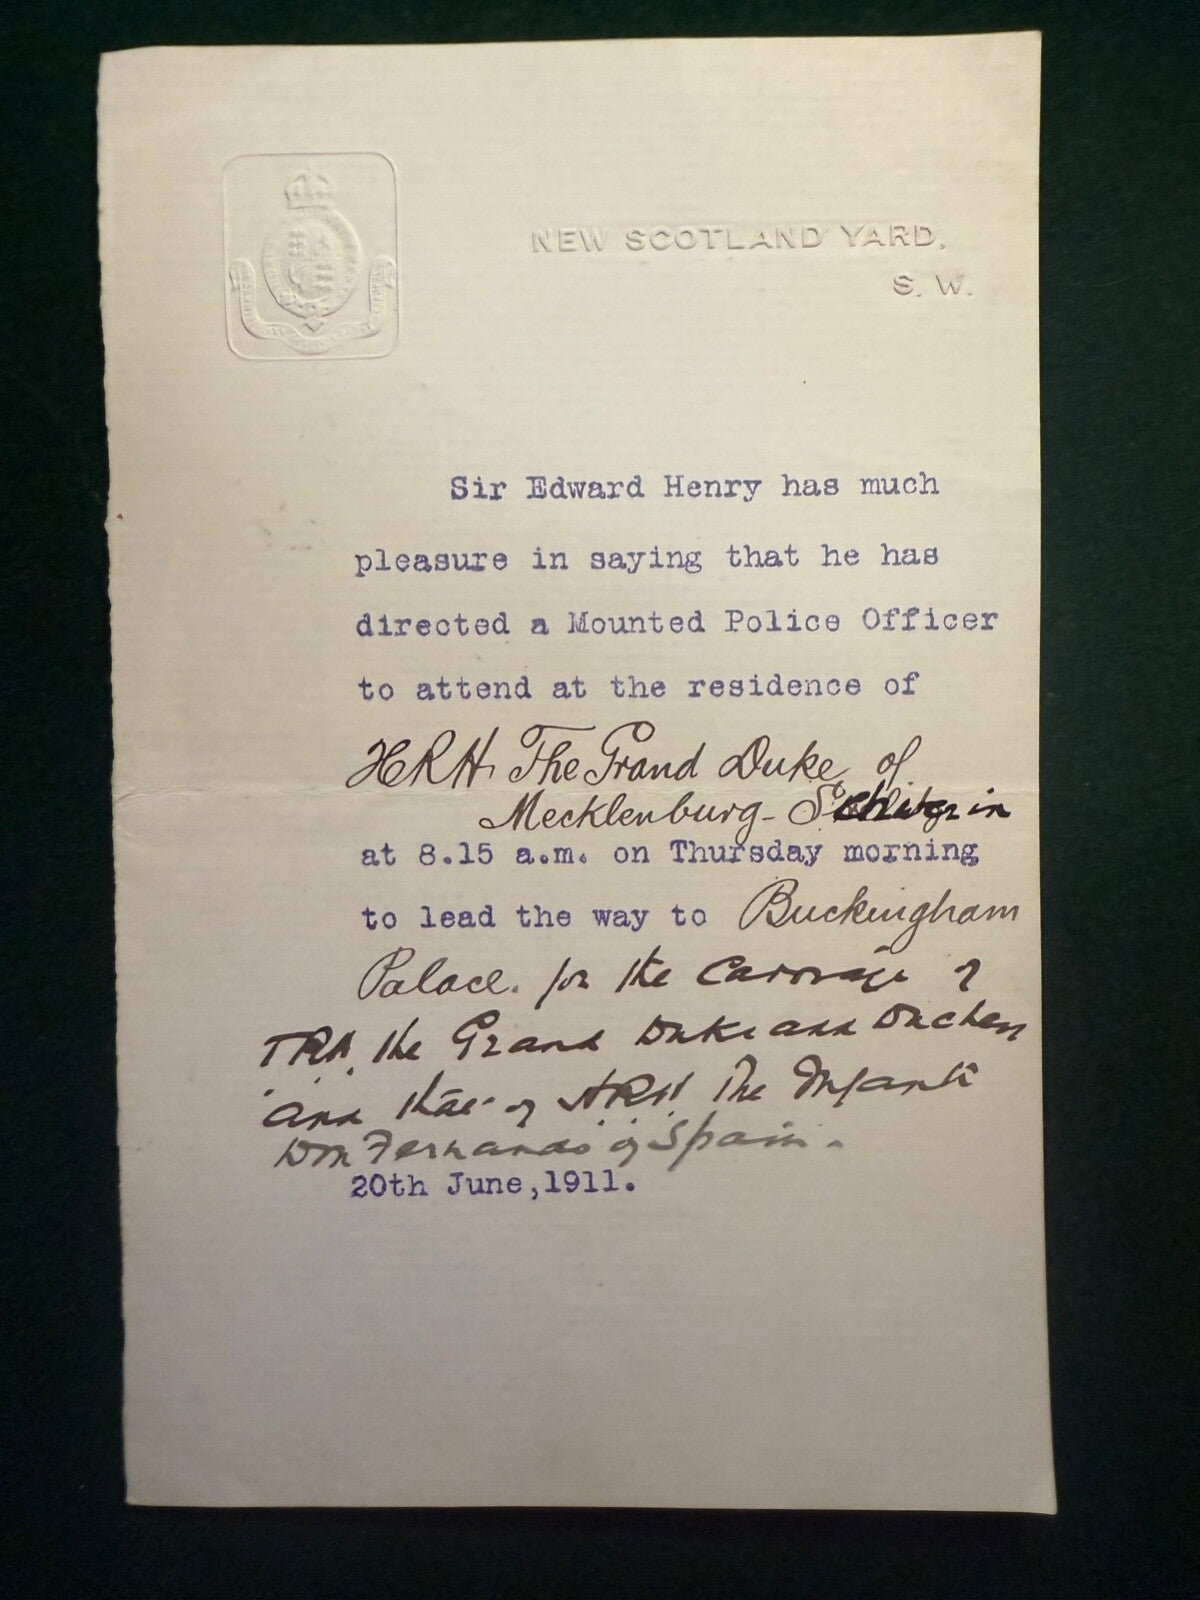 NEW SCOTLAND YARD,
S. W.
Sir Edward Henry has much
pleasure in saying that he has
directed a Mounted Police Officer
to attend at the residence of
HRH The Grand Duke of
Mecklenburg-
at 8.15 a.m. on Thursday morning
to lead the way to Buckingham
Palace. for the Carriage of
TRH. the Grand Duke and Duchess
and that of HRH The Infante
Don Fernando of Spain.
20th June, 1911.